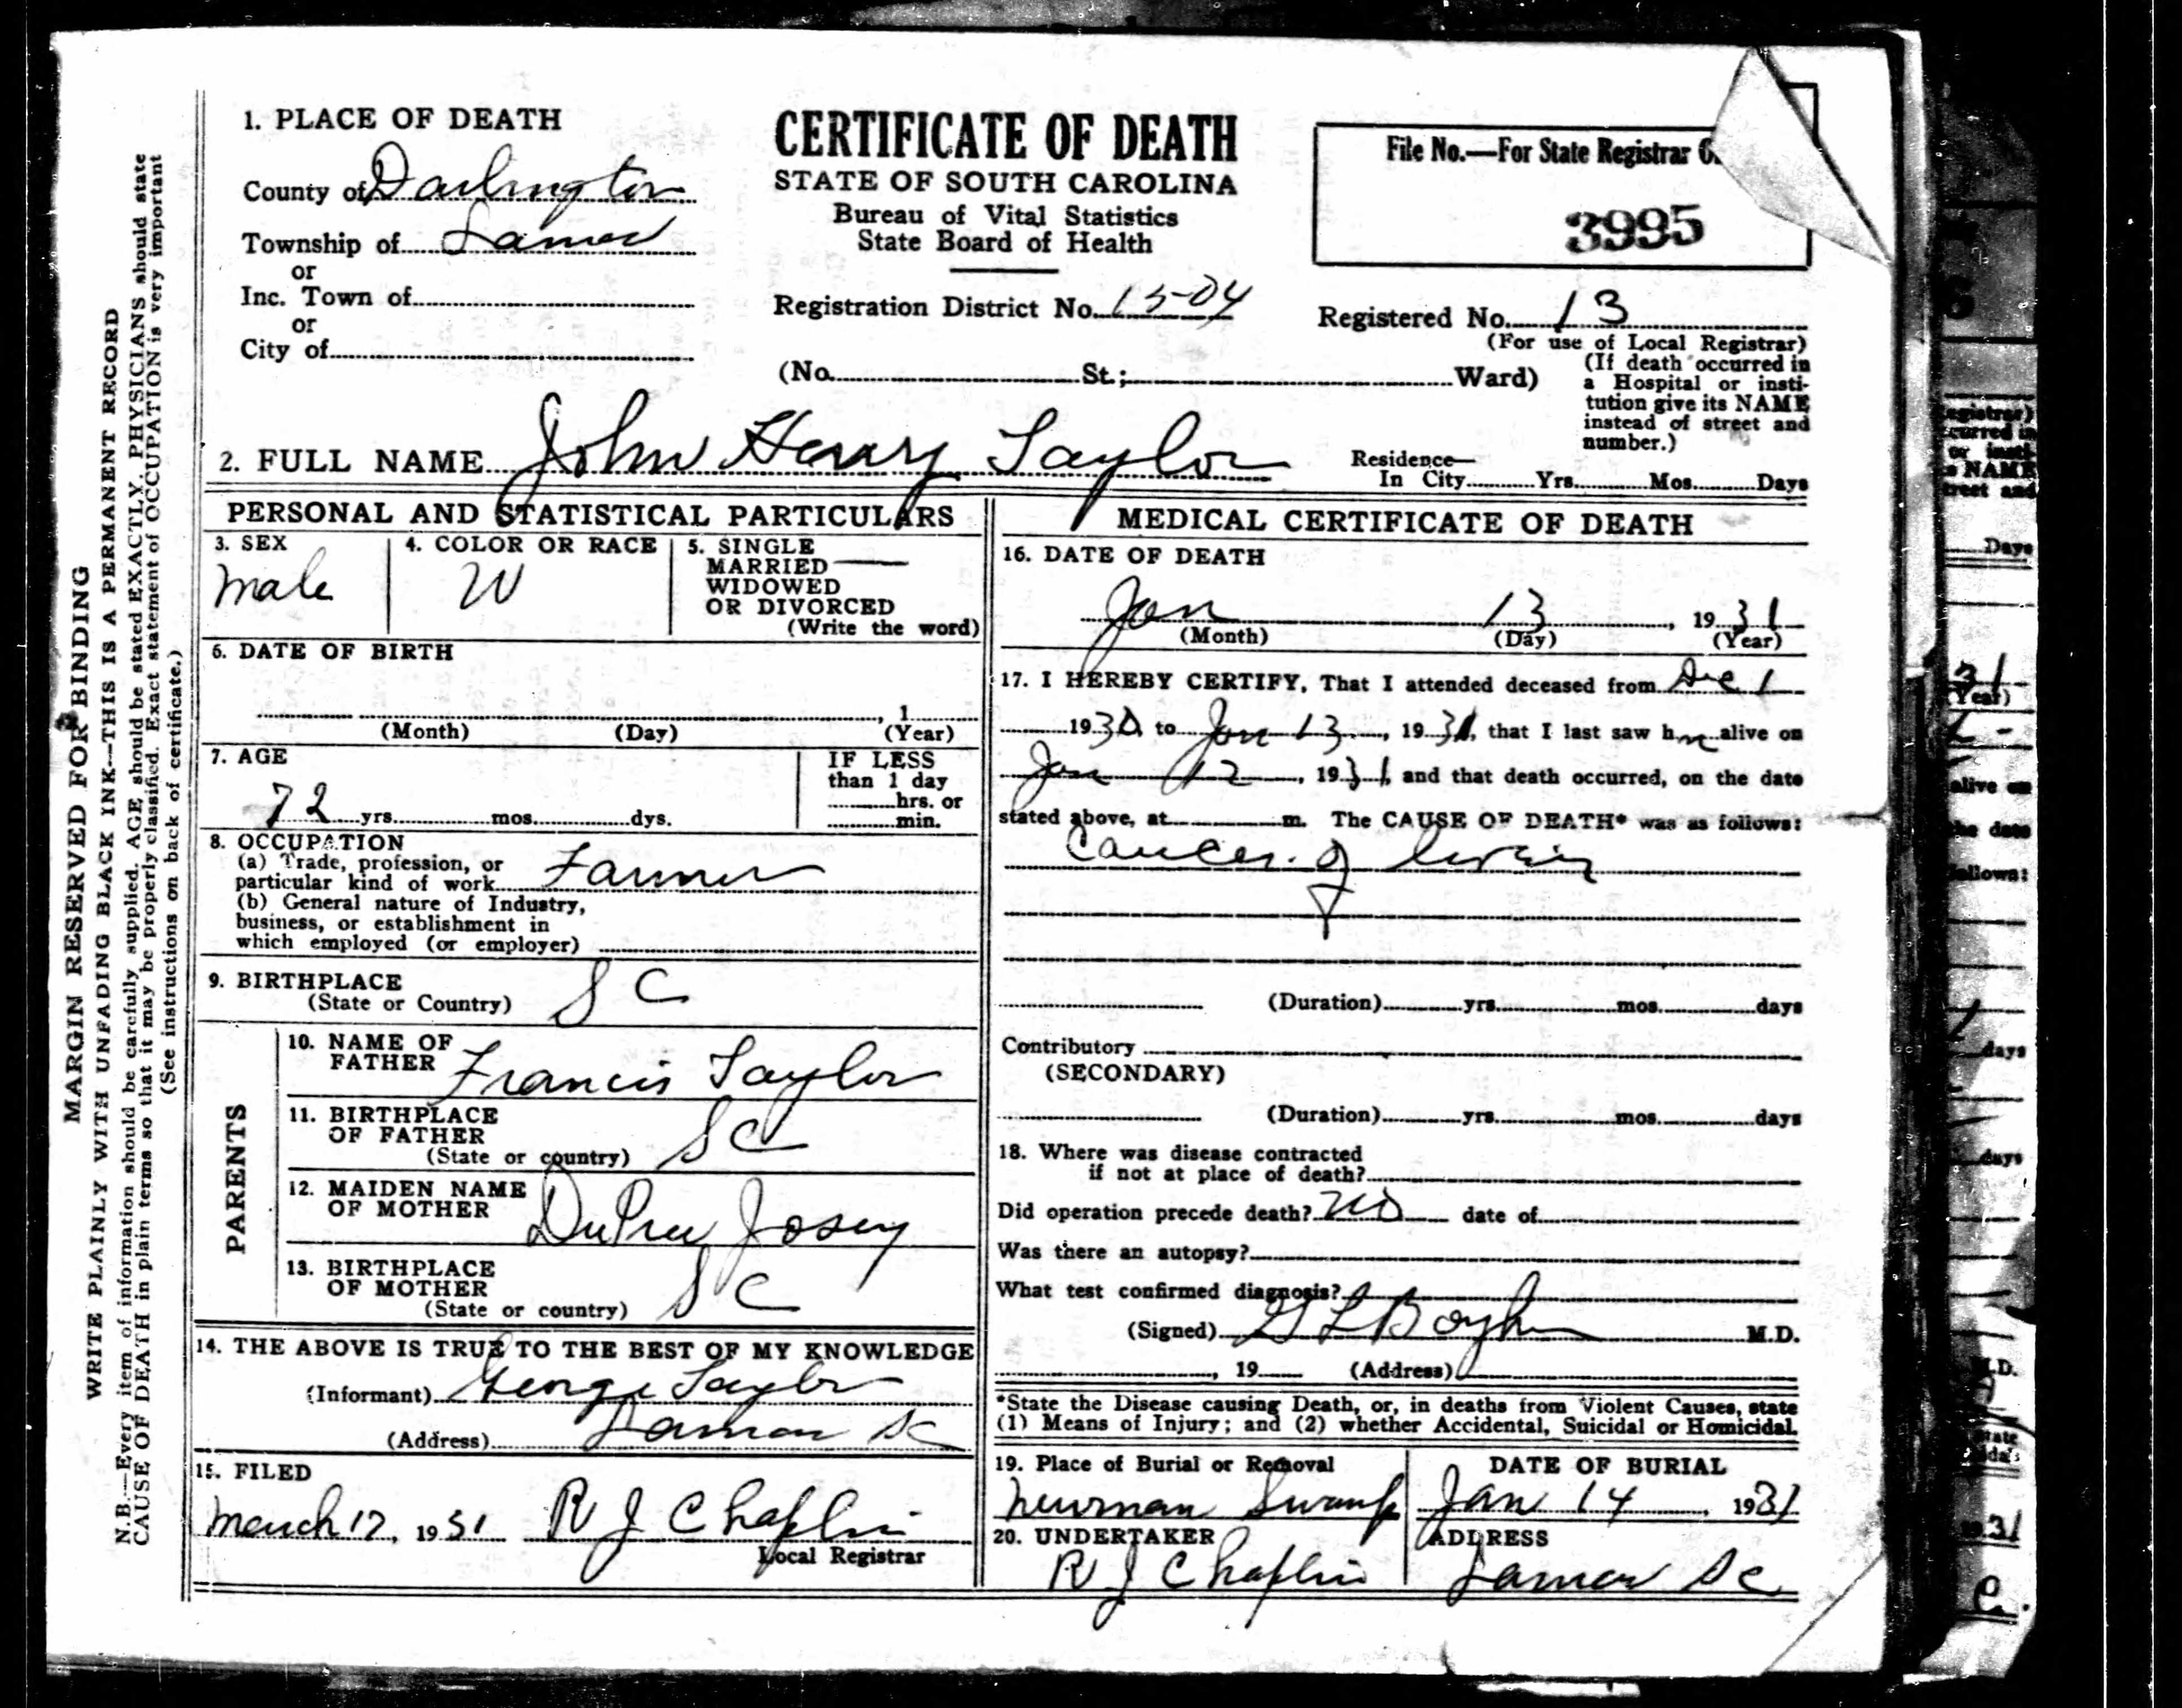 1. PLACE OF DEATH
County of Darlington
Township of Lamar
or
Inc. Town of
or
City of
CERTIFICATE OF DEATH
STATE OF SOUTH CAROLINA
Bureau of Vital Statistics
State Board of Health
Registration District No. 15-04
(No. St.; Ward)
File No.—For State Registrar
3995
Registered No. 13
(For use of Local Registrar)
(If death occurred in
a Hospital or insti-
tution give its NAME
instead of street and
number.)
2. FULL NAME John Henry Taylor
Residence—
In City Yrs. Mos. Days
PERSONAL AND STATISTICAL PARTICULARS
3. SEX
male
4. COLOR OR RACE
W
5. SINGLE
MARRIED
WIDOWED
OR DIVORCED
(Write the word)
6. DATE OF BIRTH
, 1
(Month) (Day) (Year)
7. AGE
72 yrs. mos. dys.
IF LESS
than 1 day
hrs. or
min.
8. OCCUPATION
(a) Trade, profession, or
particular kind of work Farmer
(b) General nature of Industry,
business, or establishment in
which employed (or employer)
9. BIRTHPLACE
(State or Country) S C
PARENTS
10. NAME OF
FATHER Francis Taylor
11. BIRTHPLACE
OF FATHER
(State or country) S C
12. MAIDEN NAME
OF MOTHER DuPree Josey
13. BIRTHPLACE
OF MOTHER
(State or country) S C
14. THE ABOVE IS TRUE TO THE BEST OF MY KNOWLEDGE
(Informant) George Taylor
(Address) Lamar SC
15. FILED
March 17, 1931 R J Chaplin
Local Registrar
MEDICAL CERTIFICATE OF DEATH
16. DATE OF DEATH
Jan 13, 1931
(Month) (Day) (Year)
17. I HEREBY CERTIFY, That I attended deceased from Dec 1
1930, to Jan 13, 1931, that I last saw him alive on
Jan 12, 1931, and that death occurred, on the date
stated above, at m. The CAUSE OF DEATH* was as follows:
Cancer of
(Duration) yrs. mos. days
Contributory
(SECONDARY)
(Duration) yrs. mos. days
18. Where was disease contracted
if not at place of death?
Did operation precede death? No date of
Was there an autopsy?
What test confirmed diagnosis?
(Signed) M.D.
, 19 (Address)
*State the Disease causing Death, or, in deaths from Violent Causes, state
(1) Means of Injury; and (2) whether Accidental, Suicidal or Homicidal.
19. Place of Burial or Removal
Newman Swamp
DATE OF BURIAL
Jan 14, 1931
20. UNDERTAKER
R J Chaplin
ADDRESS
Lamar SC
MARGIN RESERVED FOR BINDING
WRITE PLAINLY WITH UNFADING BLACK INK—THIS IS A PERMANENT RECORD
N.B.—Every item of information should be carefully supplied. AGE should be stated EXACTLY. PHYSICIANS should state
CAUSE OF DEATH in plain terms so that it may be properly classified. Exact statement of OCCUPATION is very important
(See instructions on back of certificate.)